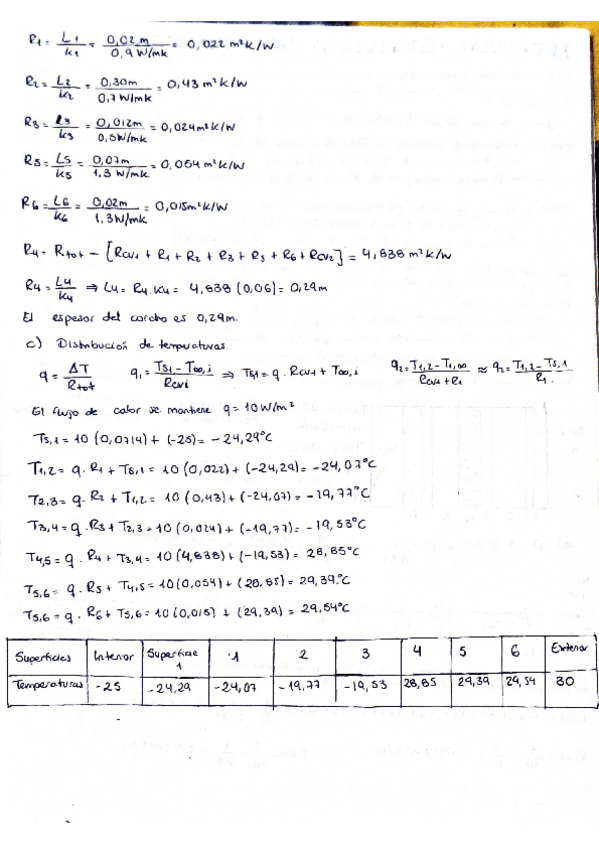 R1 = L1/k1 = 0,02m / 0,9 W/mk = 0,022 m²K/W
R2 = L2/k2 = 0,30m / 0,7 W/mk = 0,43 m²K/W
R3 = L3/k3 = 0,012m / 0,5W/mk = 0,024m²K/W
R5 = L5/k5 = 0,07m / 1,3 W/mk = 0,054 m²K/W
R6 = L6/k6 = 0,02m / 1,3W/mk = 0,015m²K/W
R4 = Rtot - [Rcv1 + R1 + R2 + R3 + R5 + R6 + Rcv2] = 4,838 m²K/W
R4 = L4/k4 ⇒ L4 = R4.K4 = 4,838 (0,06) = 0,29m
El espesor del corcho es 0,29m.
c) Distribución de temperaturas.
q = ΔT/Rtot q1 = TS1 - T∞,i / Rcvi ⇒ TS1 = q . Rcv1 + T∞,i q2 = T1,2 - T1,∞ / Rcv1 + R1 ≈ q2 = T1,2 - TS,1 / R1
El flujo de calor se mantiene q = 10W/m²
TS,1 = 10 (0,0714) + (-25) = -24,29°C
T1,2 = q . R1 + TS,1 = 10 (0,022) + (-24,29) = -24,07°C
T2,3 = q . R2 + T1,2 = 10 (0,43) + (-24,07) = -19,77°C
T3,4 = q . R3 + T2,3 = 10 (0,024) + (-19,77) = -19,53°C
T4,5 = q . R4 + T3,4 = 10 (4,838) + (-19,53) = 28,85°C
T5,6 = q . R5 + T4,5 = 10 (0,054) + (28,85) = 29,39°C
T5,6 = q . R6 + T5,6 = 10 (0,015) + (29,39) = 29,54°C
Superficies Interior Superficie 1 1 2 3 4 5 6 Exterior
Temperaturas -25 -24,29 -24,07 -19,77 -19,53 28,85 29,39 29,54 30